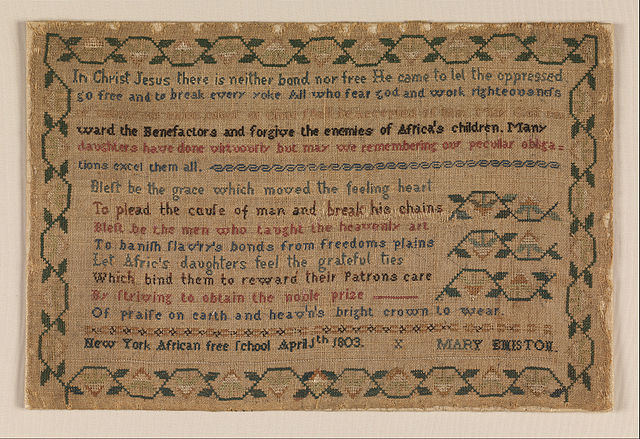 In Christ Jesus there is neither bond nor free He came to let the oppressed
go free and to break every yoke All who fear god and work righteousneſs
ward the Benefactors and forgive the enemies of Africa's children. Many
daughters have done virtuouſly but may we remembering our peculiar obliga=
tions excel them all.
Bleſt be the grace which moved the feeling heart
To plead the cauſe of man and break his chains
Bleſt be the men who taught the heavenly art
To baniſh ſlav'ry's bonds from freedoms plains
Let Afric's daughters feel the grateful ties
Which bind them to reward their Patrons care
By ſtriving to obtain the noble prize
Of praiſe on earth and heav'n's bright crown to wear.
New York African free ſchool April 1th 1803. X MARY EMISTON.